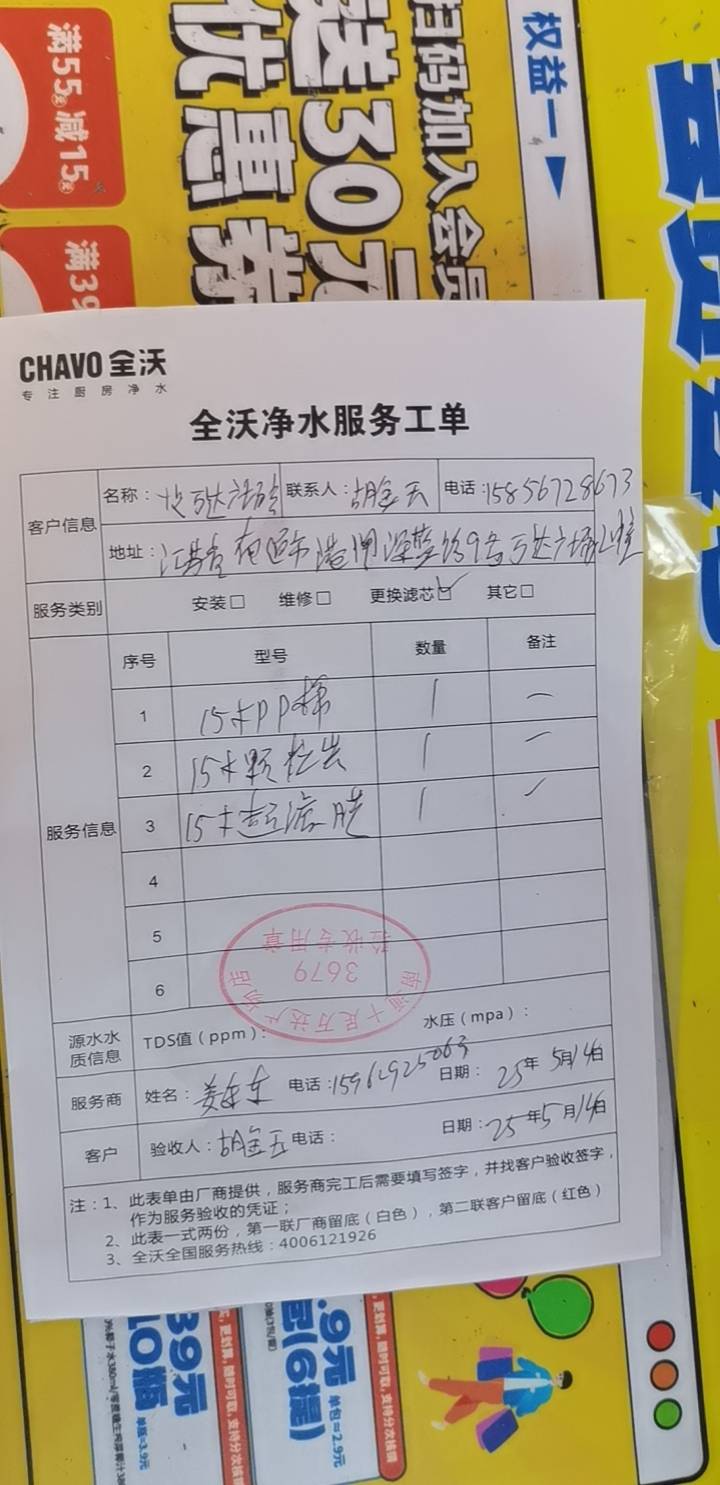 权益一
扫码加入会员
送30元
优惠券
满55元减15元
满39
CHAVO 全沃
专注厨房净水
全沃净水服务工单
客户信息
名称：
联系人：胡金云
电话：15856728673
地址：江苏省南通市港闸深蓝路9号万达广场
服务类别
安装□ 维修□ 更换滤芯☑ 其它□
服务信息
序号 型号 数量 备注
1 15寸PP棉 1 —
2 15寸颗粒炭 1 —
3 15寸超滤膜 1 —
4
5
6
验收专用章
3679
源水水质信息
TDS值（ppm）：
水压（mpa）：
服务商
姓名：
电话：15962925063
日期：25年5月14日
客户
验收人：胡金云
电话：
日期：25年5月14日
注：1、此表单由厂商提供，服务商完工后需要填写签字，并找客户验收签字，
作为服务验收的凭证；
2、此表一式两份，第一联厂商留底（白色），第二联客户留底（红色）
3、全沃全国服务热线：4006121926
39元
10瓶
单瓶=3.9元
更划算，随时可取，支持分次核销
.9元
包(6提)
单包=2.9元
更划算，随时可取，支持分次核销